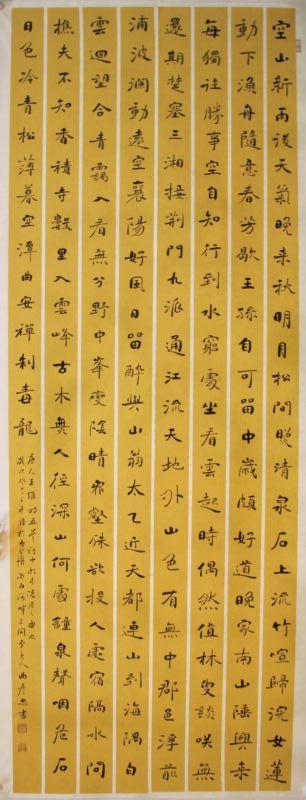 空山新雨後天氣晚来秋明月松間照清泉石上流竹喧歸浣女蓮
動下漁舟隨意春芳歇王孫自可留中歲頗好道晚家南山陲興来
每獨往勝事空自知行到水窮處坐看雲起時偶然值林叟談咲無
還期楚塞三湘接荊門九派通江流天地外山色有無中郡邑浮前
浦波瀾動遠空襄陽好風日留醉與山翁太乙近天都連山到海隅白
雲迴望合青靄入看無分野中峯變陰晴眾壑殊欲投人處宿隔水問
樵夫不知香積寺數里入雲峰古木無人徑深山何處鐘泉聲咽危石
日色冷青松薄暮空潭曲安禪制毒龍
唐人王維詩五首